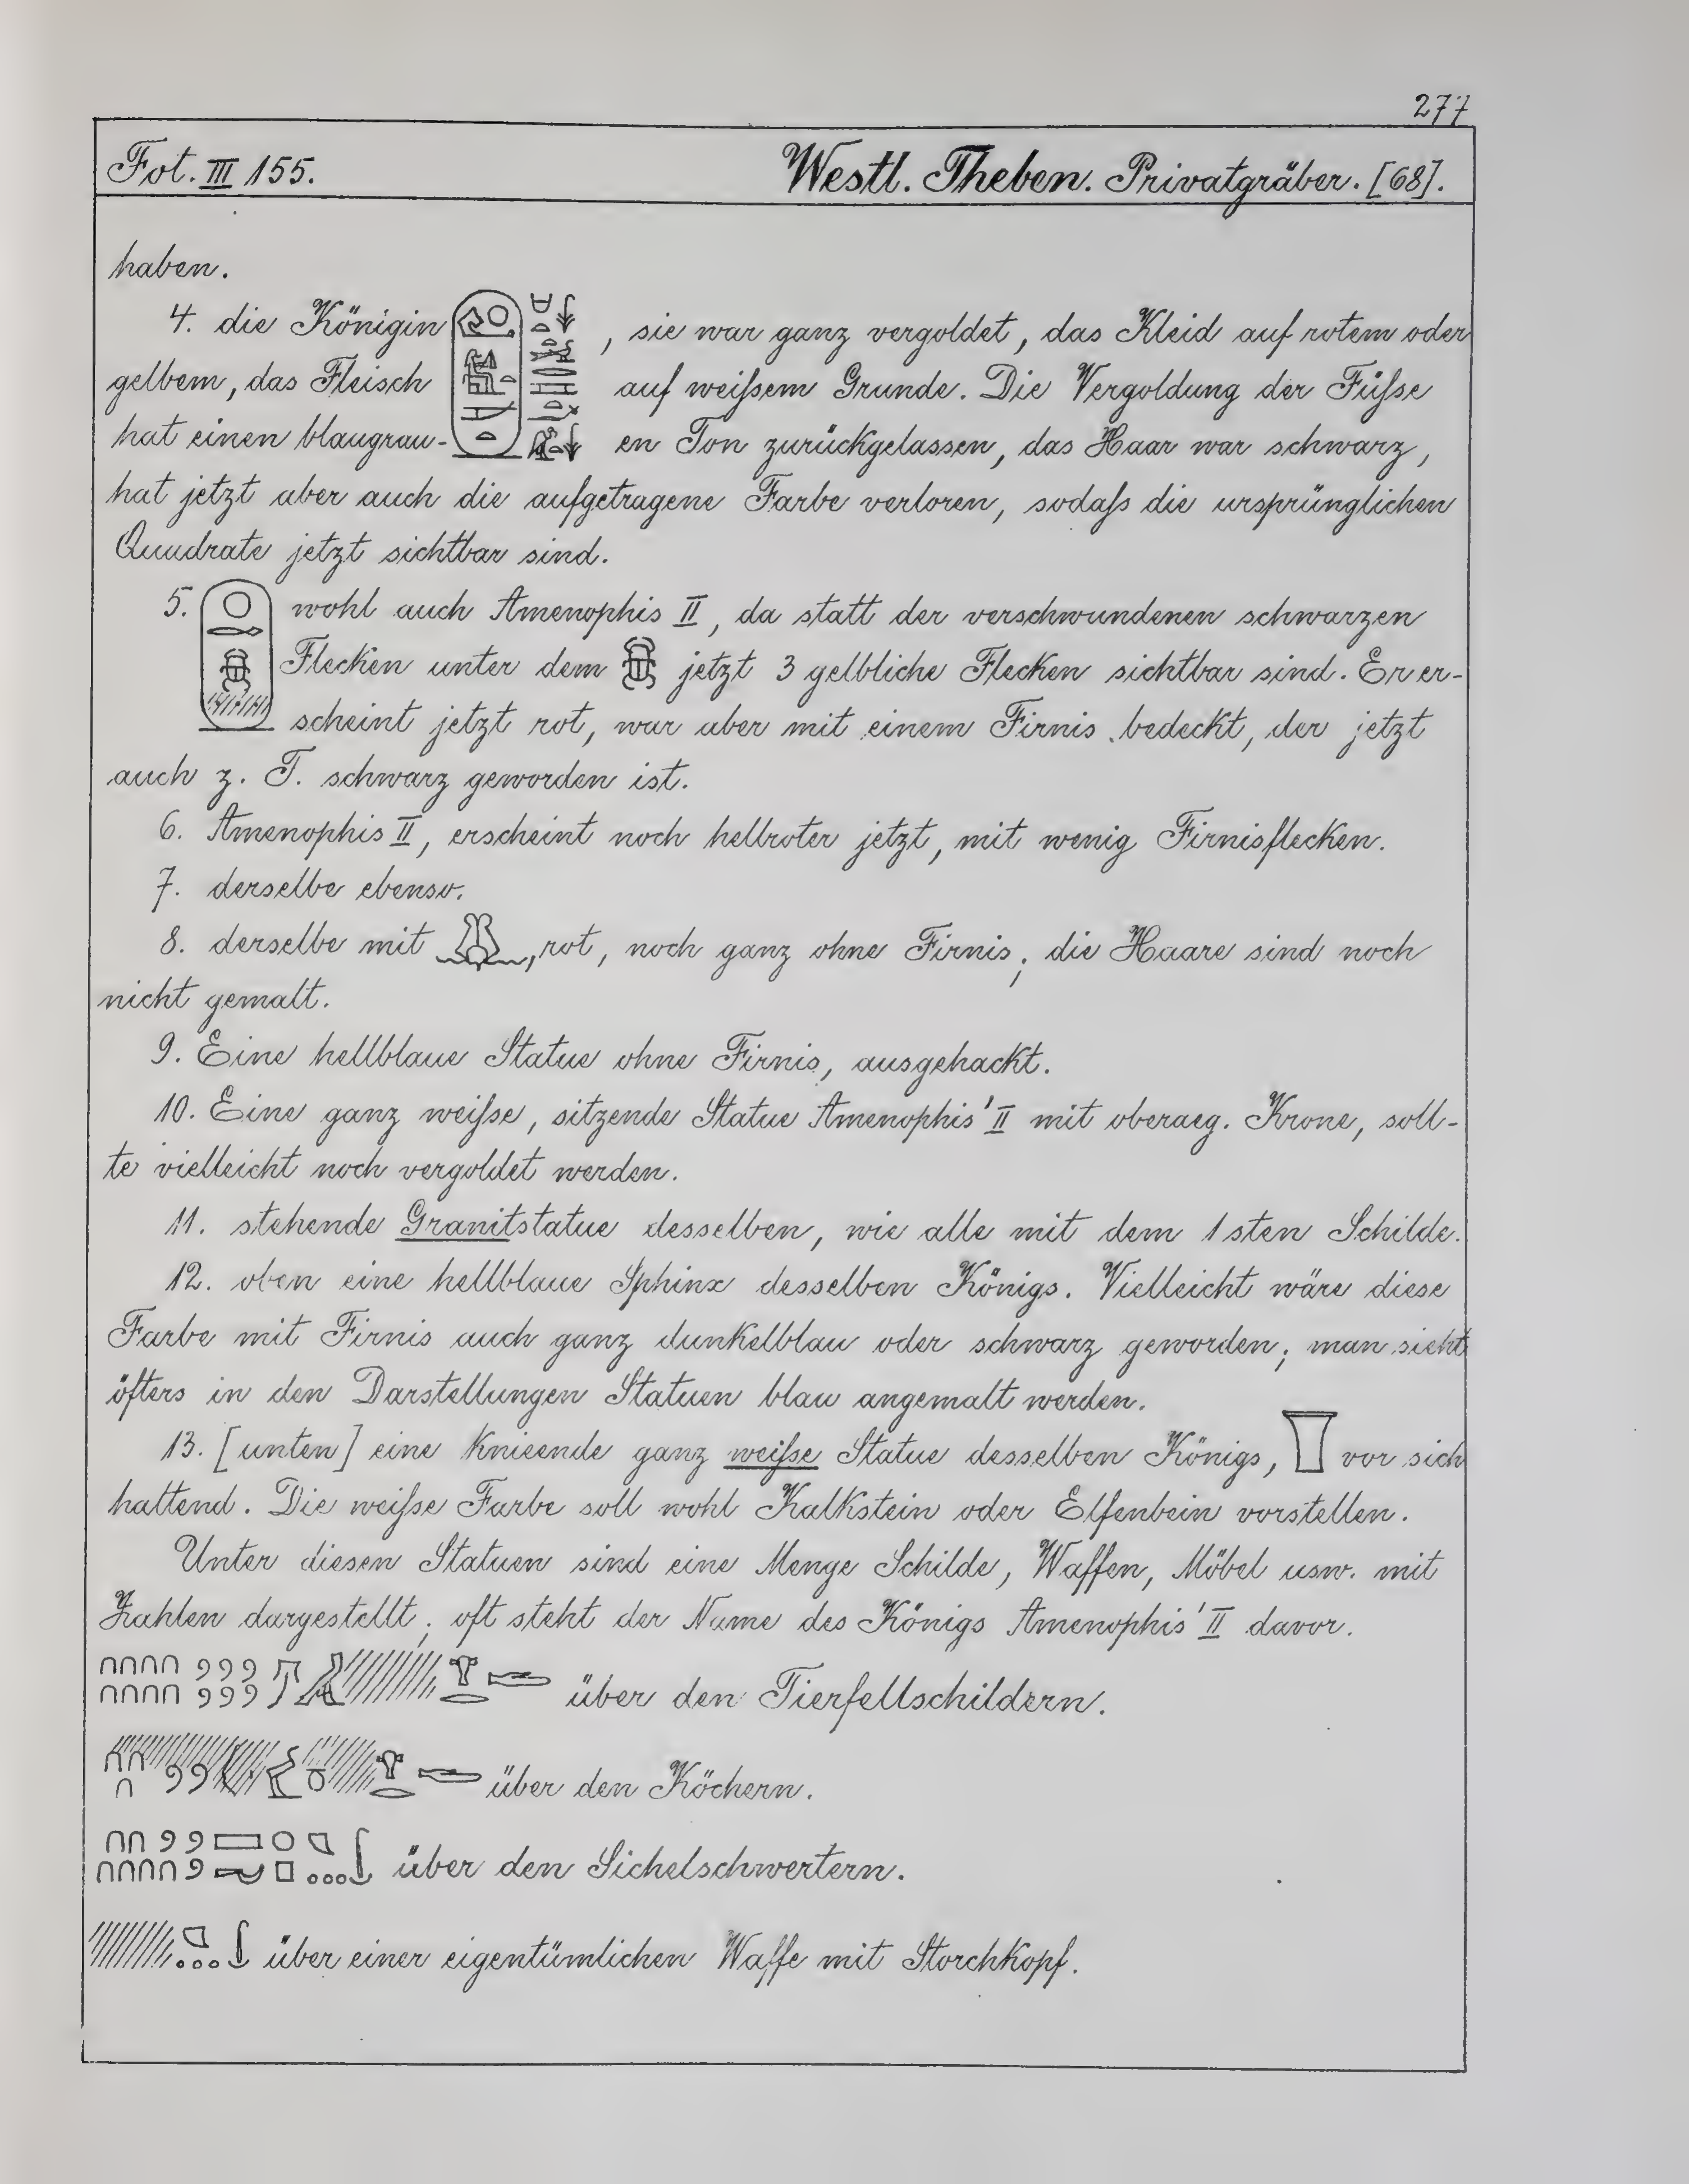 277
Fot. III 155. Westl. Theben. Privatgräber. [68].
haben.
4. die Königin , sie war ganz vergoldet, das Kleid auf rotem oder
gelbem, das Fleisch auf weißem Grunde. Die Vergoldung der Füße
hat einen blaugrau- en Ton zurückgelassen, das Haar war schwarz,
hat jetzt aber auch die aufgetragene Farbe verloren, sodaß die ursprünglichen
Quadrate jetzt sichtbar sind.
5. wohl auch Amenophis II, da statt der verschwundenen schwarzen
Flecken unter dem jetzt 3 gelbliche Flecken sichtbar sind. Er er-
scheint jetzt rot, war aber mit einem Firnis bedeckt, der jetzt
auch z. T. schwarz geworden ist.
6. Amenophis II, erscheint noch hellroter jetzt, mit wenig Firnisflecken.
7. derselbe ebenso.
8. derselbe mit , rot, noch ganz ohne Firnis; die Haare sind noch
nicht gemalt.
9. Eine hellblaue Statue ohne Firnis, ausgehackt.
10. Eine ganz weiße, sitzende Statue Amenophis' II mit oberaeg. Krone, soll-
te vielleicht noch vergoldet werden.
11. stehende Granitstatue desselben, wie alle mit dem 1sten Schilde.
12. oben eine hellblaue Sphinx desselben Königs. Vielleicht wäre diese
Farbe mit Firnis auch ganz dunkelblau oder schwarz geworden; man sieht
öfters in den Darstellungen Statuen blau angemalt werden.
13. [unten] eine knieende ganz weiße Statue desselben Königs, vor sich
haltend. Die weiße Farbe soll wohl Kalkstein oder Elfenbein vorstellen.
Unter diesen Statuen sind eine Menge Schilde, Waffen, Möbel usw. mit
Zahlen dargestellt; oft steht der Name des Königs Amenophis' II davor.
über den Tierfellschildern.
über den Köchern.
über den Sichelschwertern.
über einer eigentümlichen Waffe mit Storchkopf.